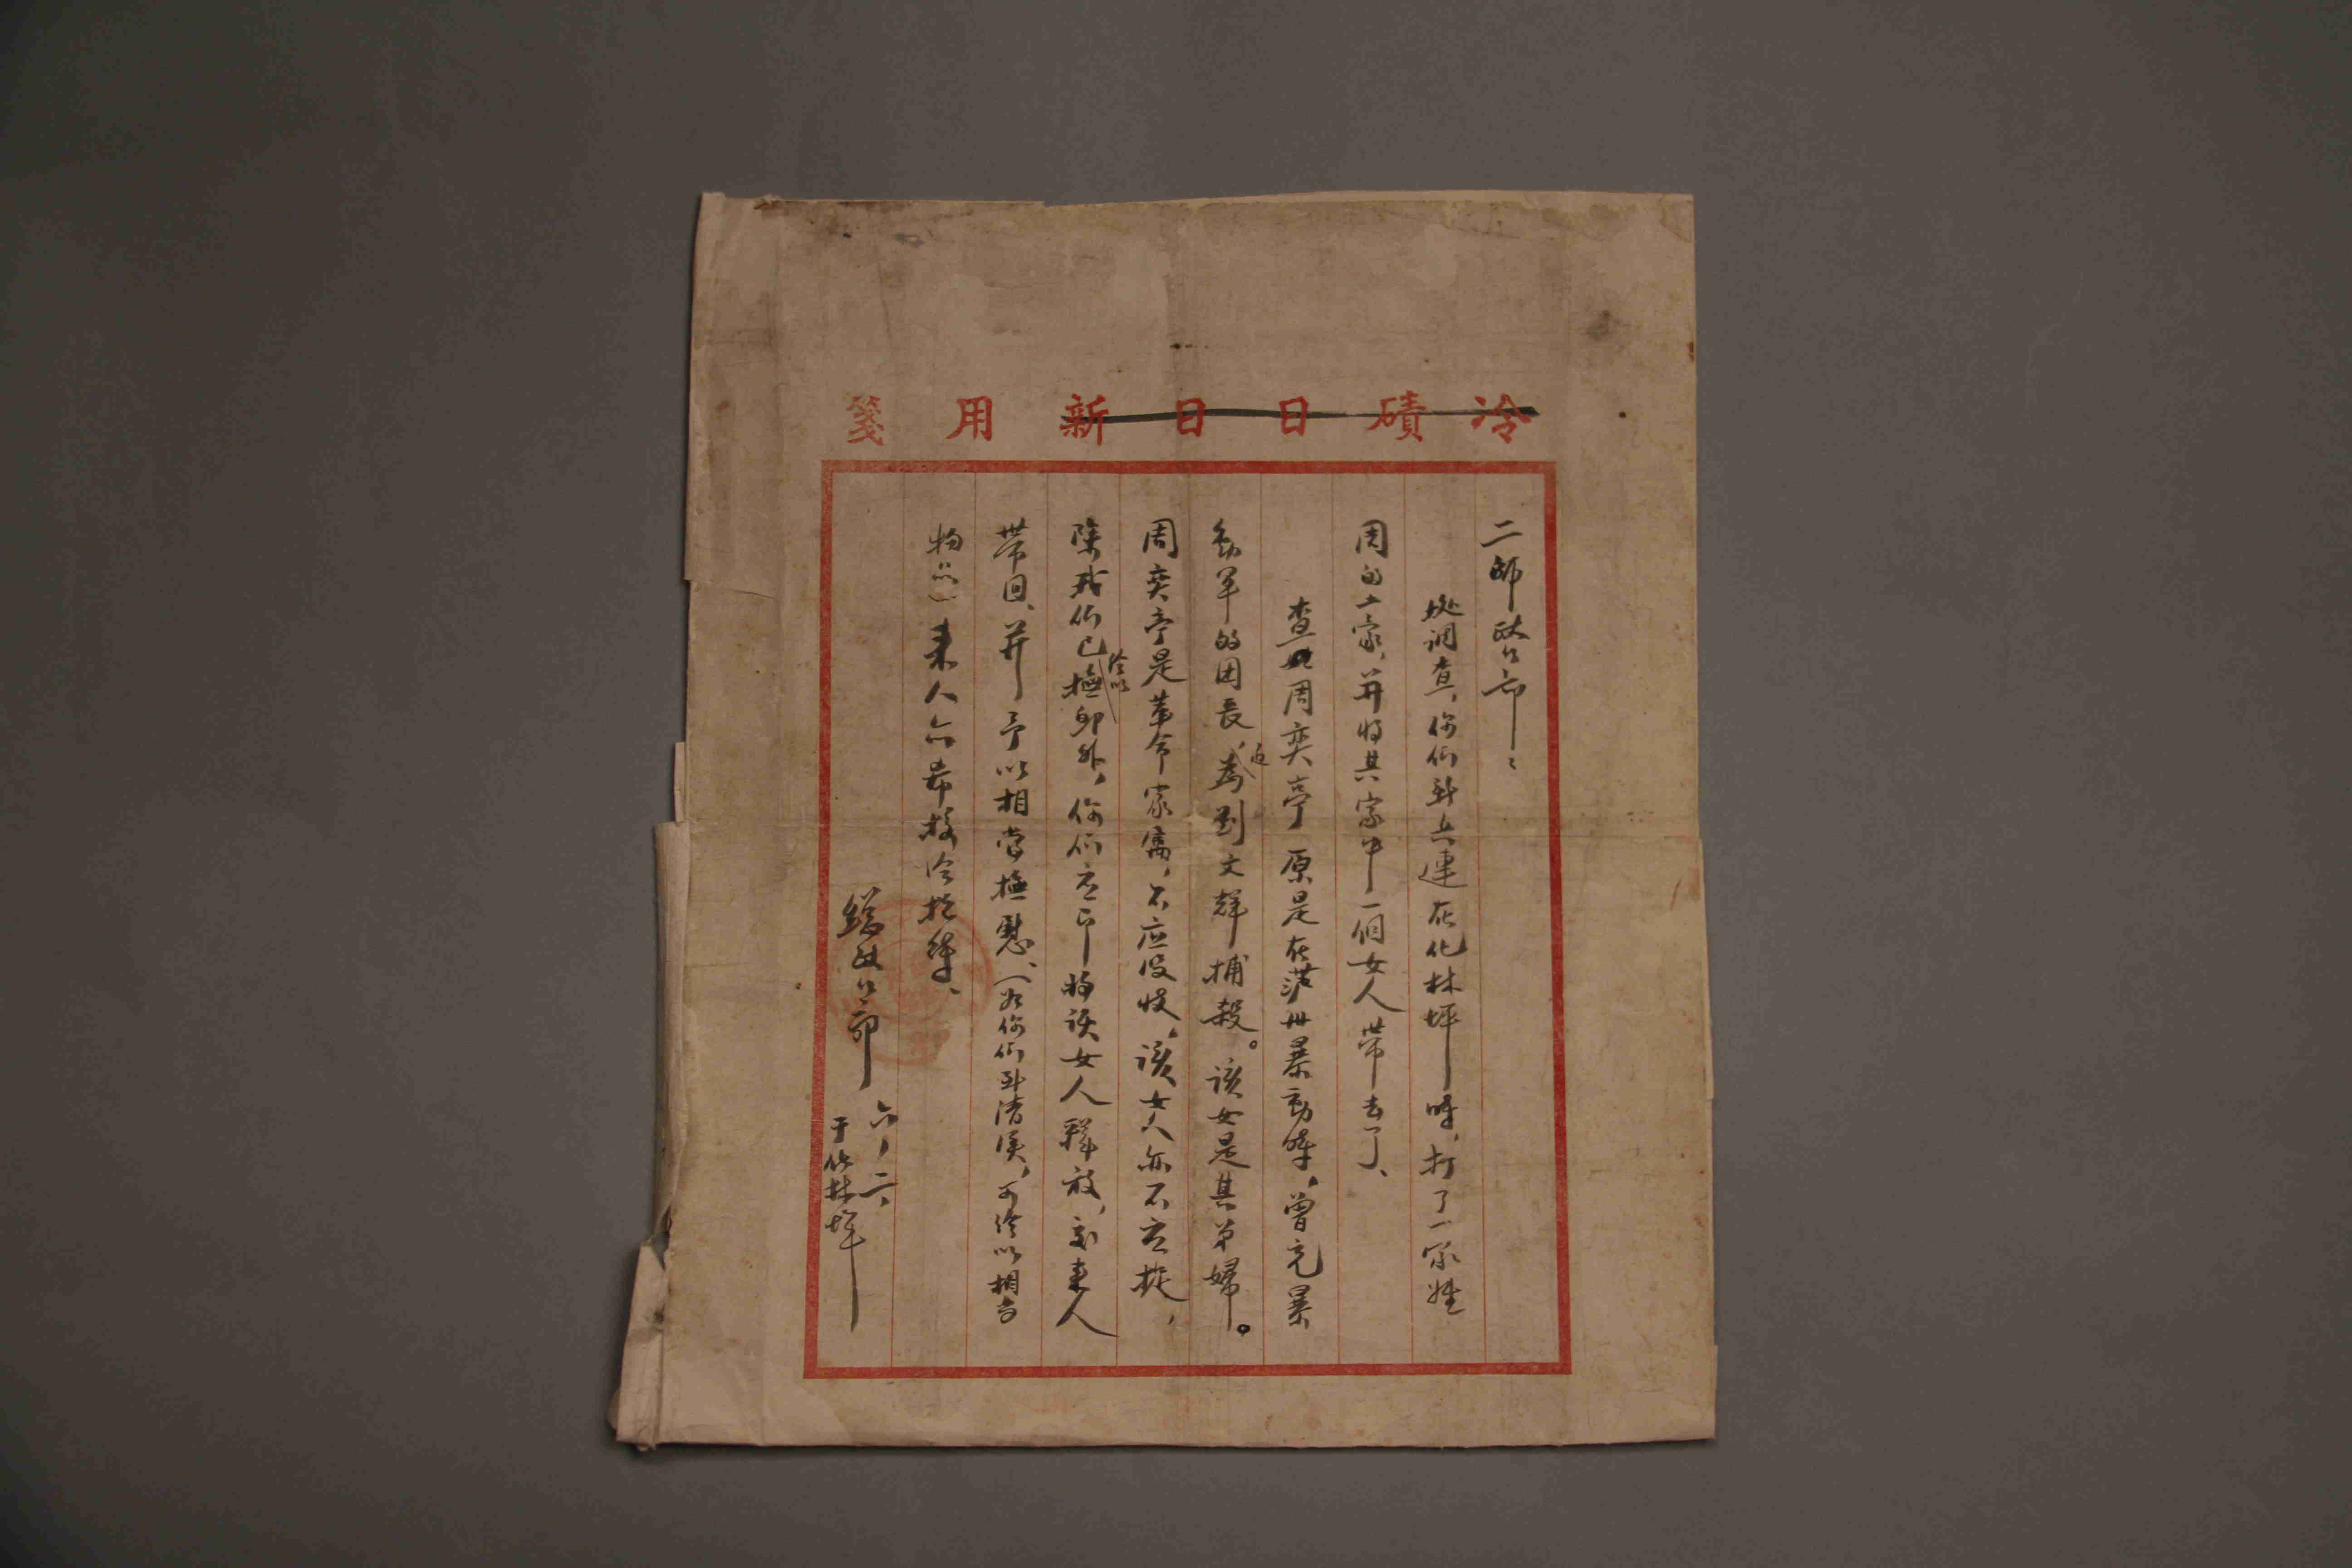 冷磧日日新用箋
二師政治部：
據調查，你們工兵連在化林坪時，打了一家姓
周的土豪，并將其家中一個女人帶去了、
查周奕亭原是在滎世暴動時，曾充暴
動軍的团長，近為劉文輝捕殺。該女是其弟婦。
周奕亭是革命家屬，不应没收，該女人亦不应捉，
除我們已給以撫卹外，你們应即將該女人釋放，交來人
帶回、并予以相當撫慰、（如你們到清溪，可給以相當
物品）來人亦希好好招待、
總政治部
六，二六，
于化林坪